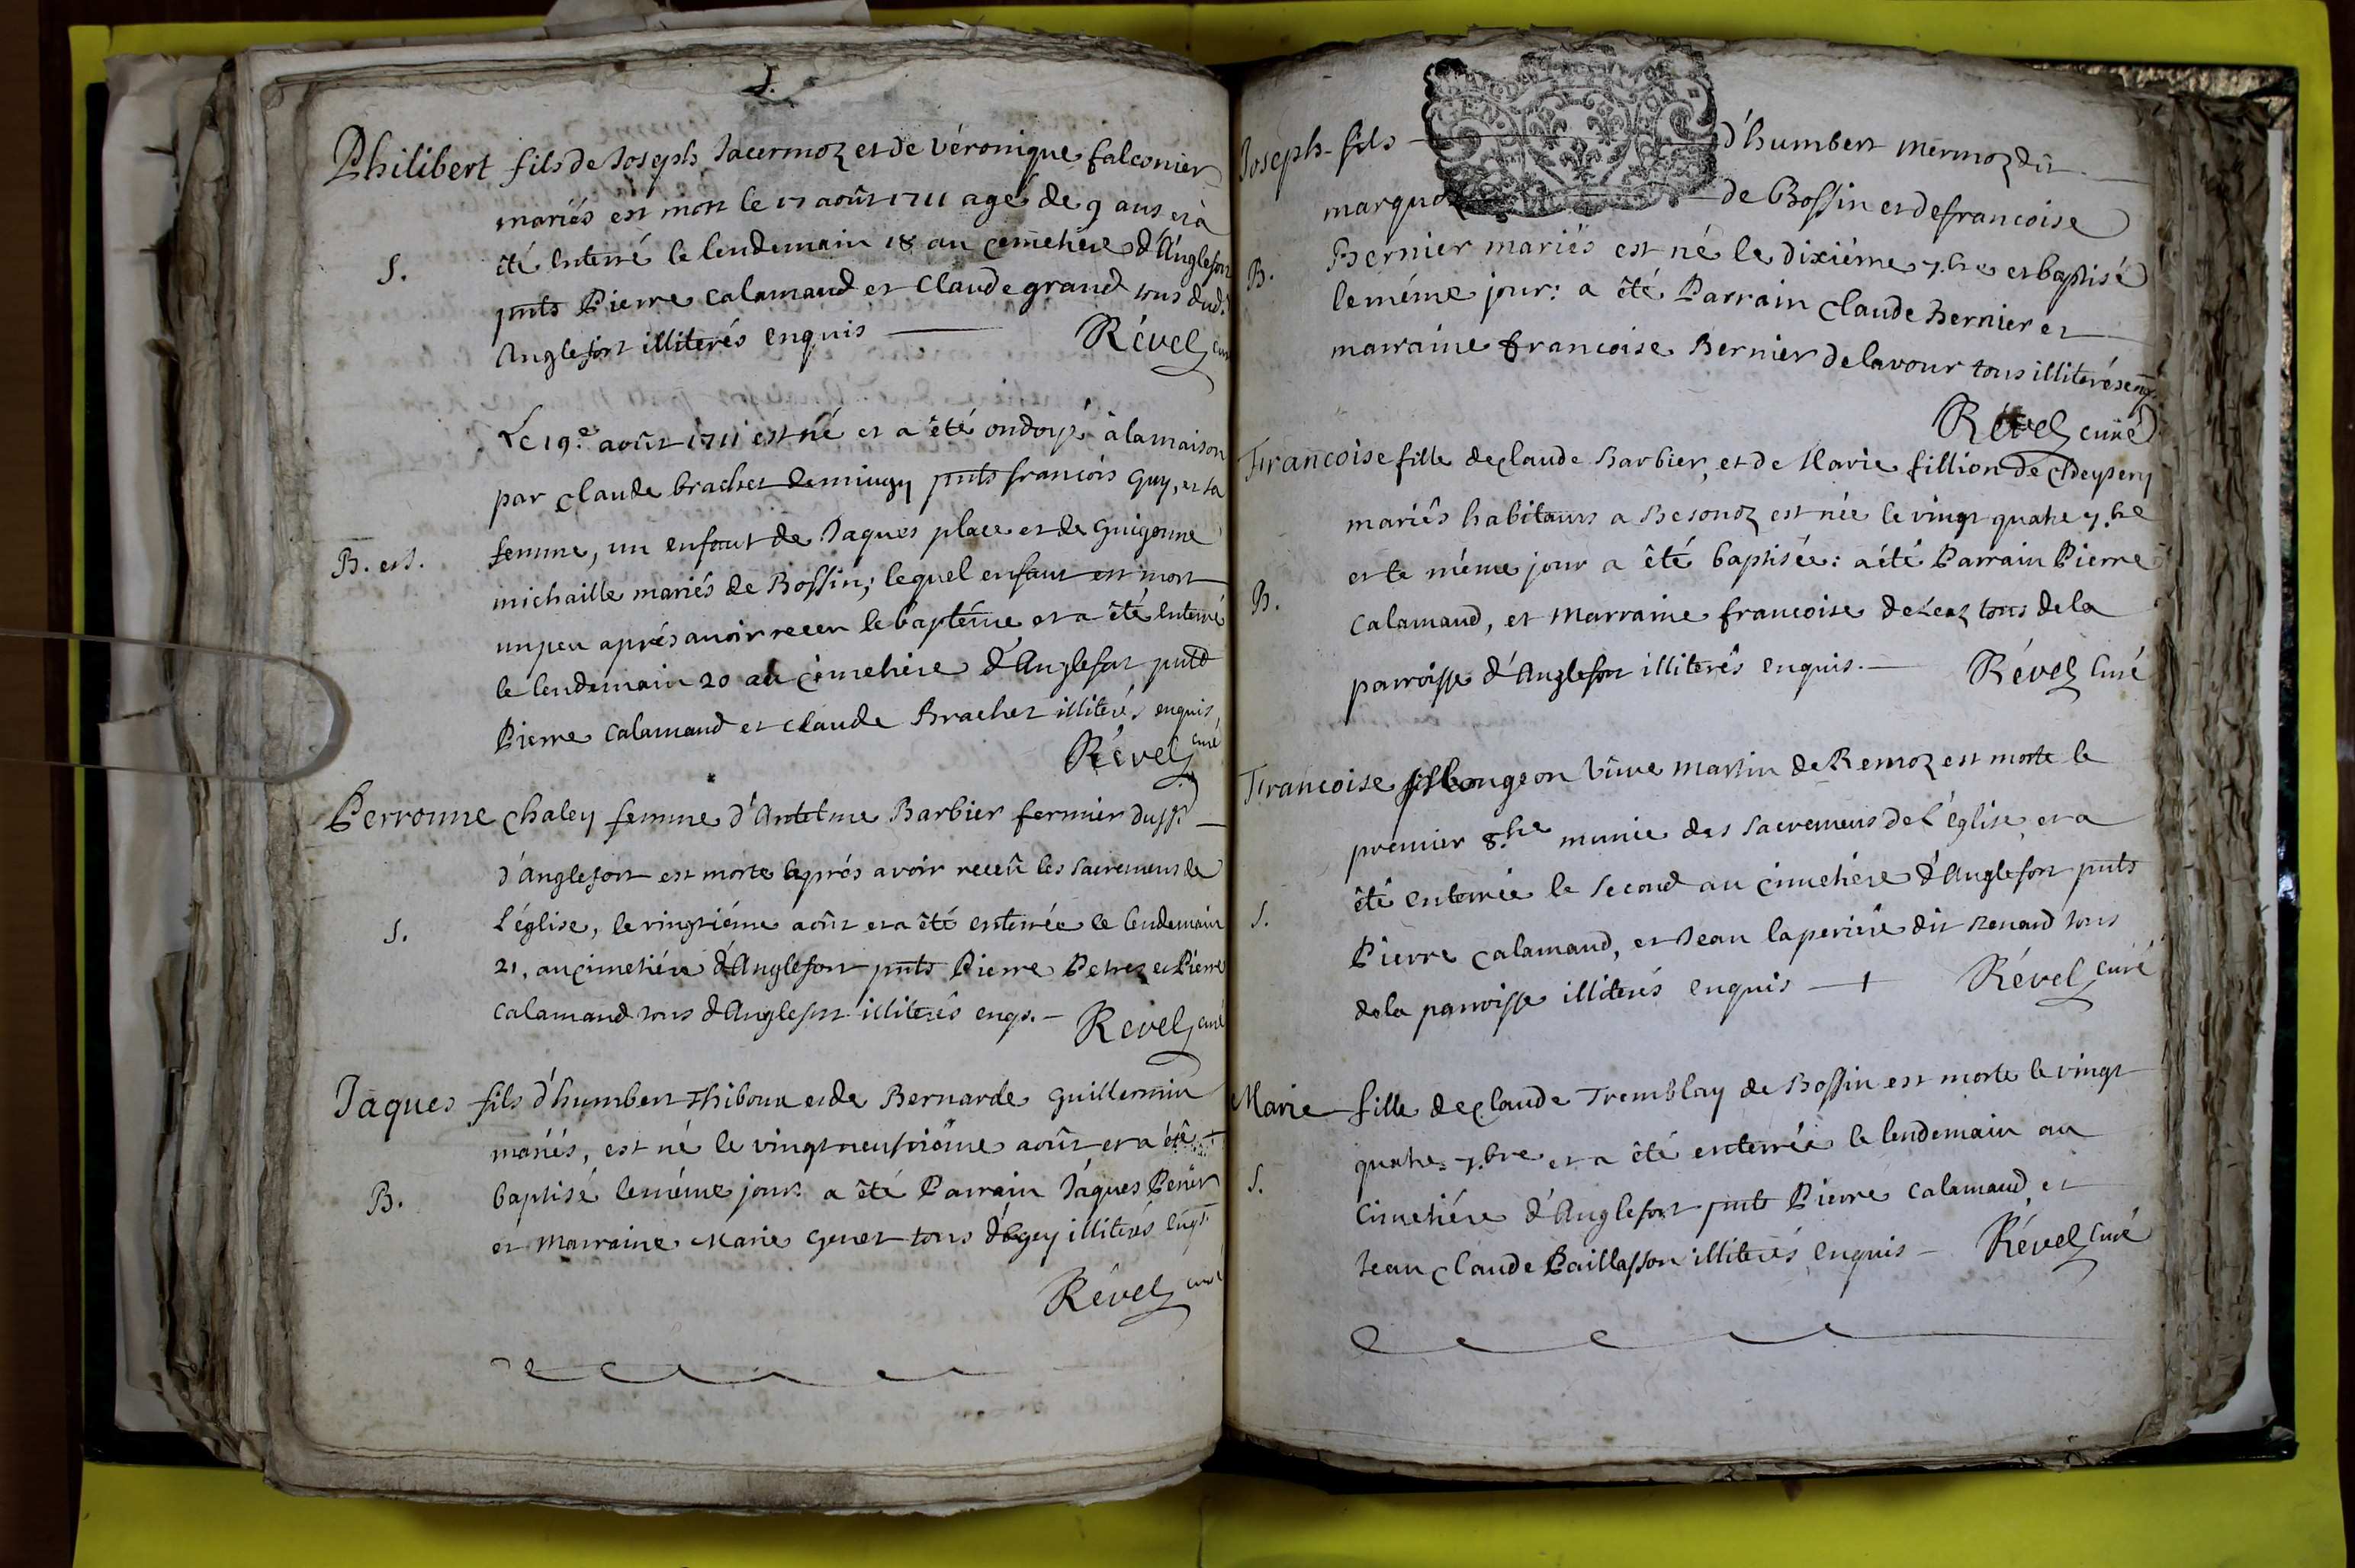 Philibert fils de Joseph Jacermoz et de véronique falconier
mariés est mort le 17 août 1711 agé de 9 ans et à
S.
été enterré le lendemain 18 au cemetiére d'Anglefort
pnts Pierre Calamand et Claude grand tous dud.
Anglefort illiterés enquis
Révél curé
Le 19.e août 1711 est né et a été ondoyé à la maison
par Claude brachet pnts francois Guy, et sa
B. et S.
femme, un enfant de Jaques place et de Guigonne
michaille mariés de Bossin; lequel enfant est mort
un peu aprés avoir receu le baptéme et a été enterré
le lendemain 20 au cimetiere d'Anglefort pnts
Pierre Calamand et Claude Brachet illiterés enquis
Révél curé
Perronne Chaley femme d'Antelme Barbier fermier du
d'Anglefort est morte aprés avoir receû les sacremens de
S.
l'église, le vingtiéme août et a été enterrée le lendemain
21, au cimetiére d'Anglefort pnts Pierre Petrez et Pierre
Calamand tous d'Anglefort illiterés enqs. -
Revel curé
Jaques fils d'humbert Thiboux et de Bernarde Guillermin
mariés, est né le vingt neufviéme août et a été
B.
baptisé leméme jour: a été Parrain Jaques
et Marraine Marie Genet tous illiterés enqs.
Révél curé
Joseph fils d'humbert mermoz dit
marquoz de Bossin et de francoise
B.
Bernier mariés est né le dixiéme 7.bre et baptisé
leméme jour: a été Parrain Claude Bernier et
marraine francoise Bernier delavour tous illiterés enq.
Révél curé
Francoise fille de Claude Barbier, et de Marie fillion de Cheysery
mariés habitans a Besonoz est née le vingt quatre 7.bre
et le méme jour a été baptisée: a été Parrain Pierre
B.
Calamand, et Marraine francoise deLeaz tous de la
parroisse d'Anglefort illiterés enquis. -
Révél Curé
Francoise vûive martin de Remoz est morte le
premier 8.bre munie des sacremens de l'église, et a
S.
été enterrée le second au cimetiére d'Anglefort pnts
Pierre Calamand, et Jean laperiére dit Renard tous
dela parroisse illiterés enquis
Révél curé
Marie fille de Claude Tremblay de Bossin est morte le vingt
quatre 7.bre et a été enterrée le lendemain au
S.
cimetiére d'Anglefort pnts Pierre Calamand, et
Jean Claude Paillasson illiterés enquis -
Révél Curé